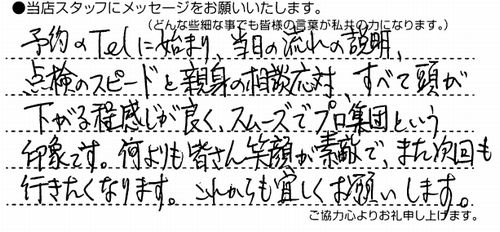 ●当店スタッフにメッセージをお願いいたします。
(どんな些細な事でも皆様の言葉が私共の力になります。)
予約のTelに始まり、当日の流れの説明、
点検のスピードと親身の相談応対、すべて頭が
下がる程感じが良く、スムーズでプロ集団という
印象です。何よりも皆さん笑顔が素敵で、また次回も
行きたくなります。これからも宜しくお願いします。
ご協力心よりお礼申し上げます。